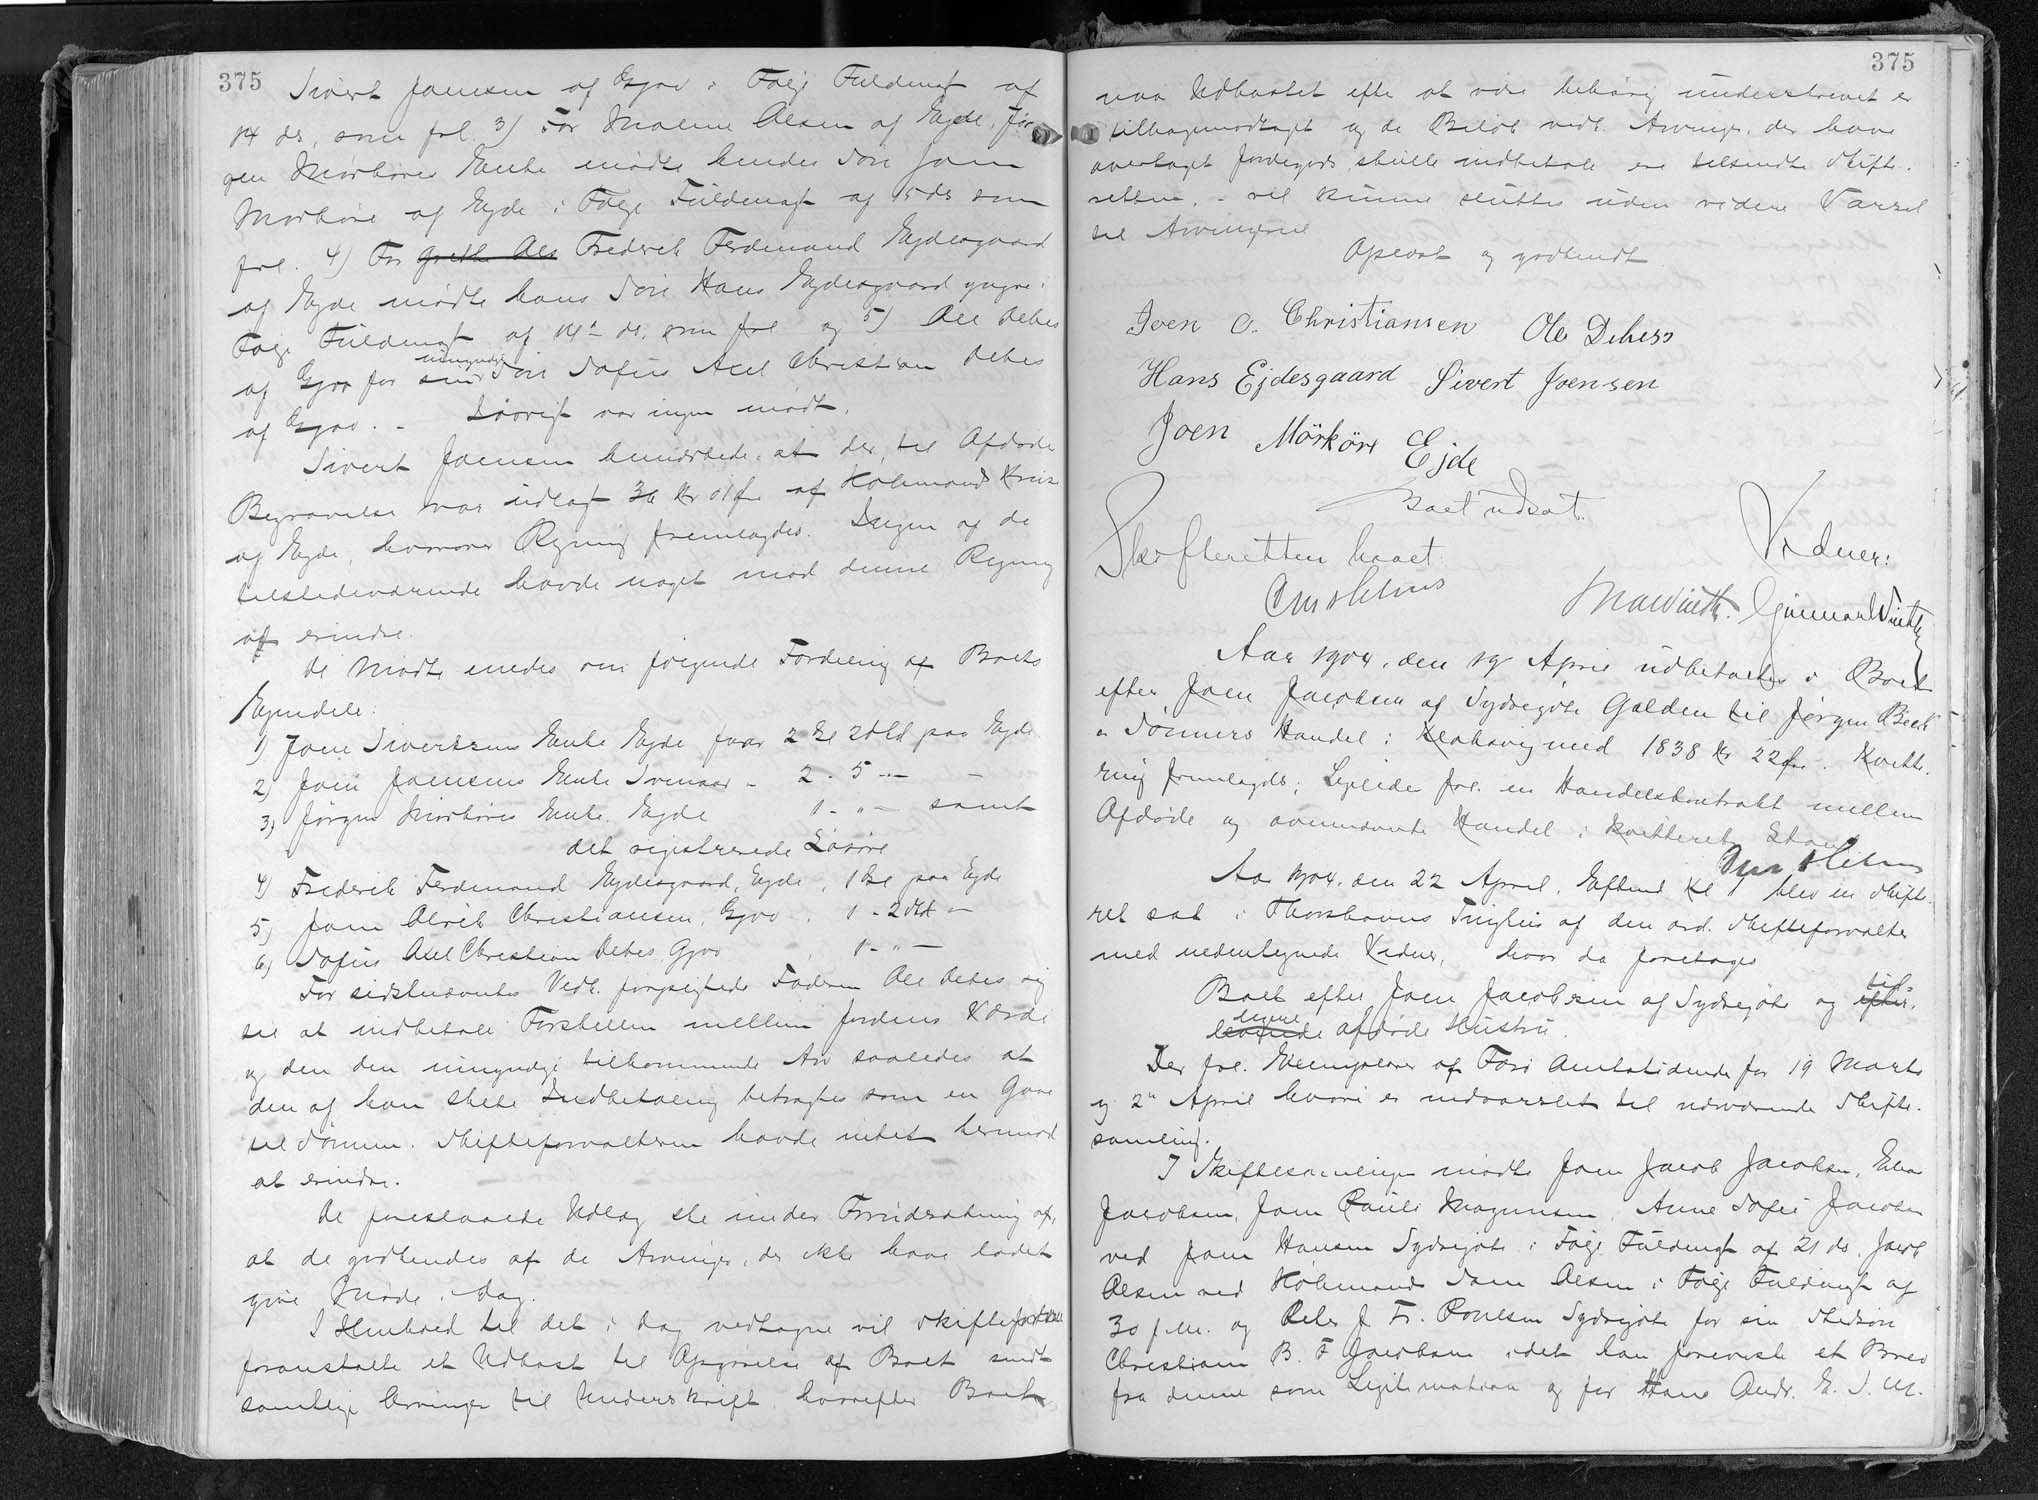 375
Sivert Joensen af Gjov i Følge Fuldmagt af
14 ds, som frl. 3) For Malene Olsen af Ejde, Jør-
gen Mørkøres Enke mødte hendes Søn Joen
Mørköre af Ejde i Følge Fuldmagt af 15 ds som
frl. 4) For Frederik Ferdinand Ejdesgaard
af Ejde mødte hans Søn Hans Ejdesgaard yngre i
Følge Fuldmagt af 14 ds. som frl og 5) Ole Debes
af Gjov for sin umyndige Søn Sofus Axel Christian Debes
af Gjov. - Iøvrigt var ingen mødt.
Sivert Joensen bemærkede, at der til Afdøde
Begravelse var udlagt 36 Kr 01 Øre af Købmand
af Ejde, hvorover Regning fremlagdes. Ingen af de
tilstedeværende havde noget mod denne Regning
at erindre.
De Mødte enedes om følgende Fordeling af Boets
Ejendele.
1) Joen Sivertsens Enke Ejde faar 2 Gl 2 Skd paa Ejde
2) Joen Joensens Enke Svinaar - 2 - 5 - -
3) Jørgen Mørköres Enke. Ejde 1 - " - samt
det registrerede Løsøre
4) Frederik Ferdinand Ejdesgaard, Ejde, 1 Gl paa Ejde
5) Joen Olrik Christiansen, Gjov . 1 - 2 Skd -
6) Sofus Axel Christian Debes Gjov , 1 - " -
For sidstnævntes Vedk. forpligtede Faderen Ole Debes sig
til at indbetale Forskellen mellem Jordens Værdi
og den den umyndige tilkommende Arv saaledes at
den af ham skete Indbetaling betragtes som en Gave
til Sønnen. Skifteforvalteren havde intet hermod
at erindre.
De foreslaaede Udlæg ske under Forudsætning af,
at de godkendes af de Arvinger, der ikke have ladet
give Møde i Dag.
I Henhold til det i Dag vedtagne vil Skifteforvalteren
foranstalte et Udkast til Opgørelse af Boet sendt
samtlige Arvinger til Underskrift, hvorefter Boet
375
naar Udkastet efter at være behørig underskrevet er
tilbagemodtaget og de Beløb vedk. Arvinger, der have
overtaget Jordegods skulle indbetale ere tilsendte Skifte-
retten, - vil kunne sluttes uden videre Varsel
til Arvingerne
Oplæst og godkendt
Joen O. Christiansen Ole Debess
Hans Ejdesgaard Sivert Joensen
Joen Mörköre Ejde
Boet udsat.
Skifteretten hævet.
Vidner:
Gunnar Winther
Aar 1904, den 19 April udbetaltes i Boet
efter Joen Jacobsen af Sydregøte Gælden til Jørgen Bech
& Sønners Handel i Klaksvig med 1838 Kr 22 Øre. Kvitte-
ring fremlagdes; Ligeledes frl. en Handelskontrakt mellem
Afdøde og ovennævnte Handel i kvitteret Stand
Aar 1904, den 22 April, Eftmd Kl blev en Skifte-
ret sat i Thorshavns Tinghus af den ord. Skifteforvalter
med medentegnede Vidner, hvor da foretoges
Boet efter Joen Jacobsen af Sydregøte og til-
afdøde Hustru.
Der frl. Exemplarer af Færø Amtstidende for 19 Marts
og 2" April hvori er indvarslet til nærværende Skifte-
samling.
I Skiftesamlingen mødte Joen Jacob Jacobsen,
Jacobsen, Joen Pauli Magnussen, Anne Sofie Jacobsen
ved Joen Hansen Sydregøte i Følge Fuldmagt af 21 ds, Jacob
Olsen ved Købmand Olsen i Følge Fuldmagt af
30 f.M. og Peter J. Fr. Poulsen Sydregøte for sin Stedsøn
Christian B. F Jacobsen idet han foreviste et Brev
fra denne som Legitimation og for Hans Andr. E. J. M.